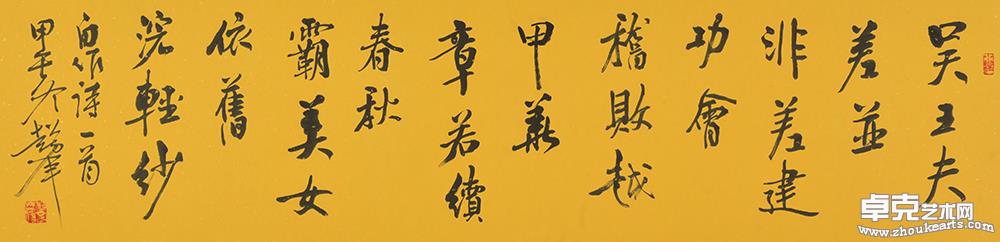 吴王夫
差並
非差建
功會
稽敗越
甲華
章若續
春秋
霸美女
依舊
浣輕紗
自作詩一首
甲午冬
卓克艺术网
www.zhoukearts.com